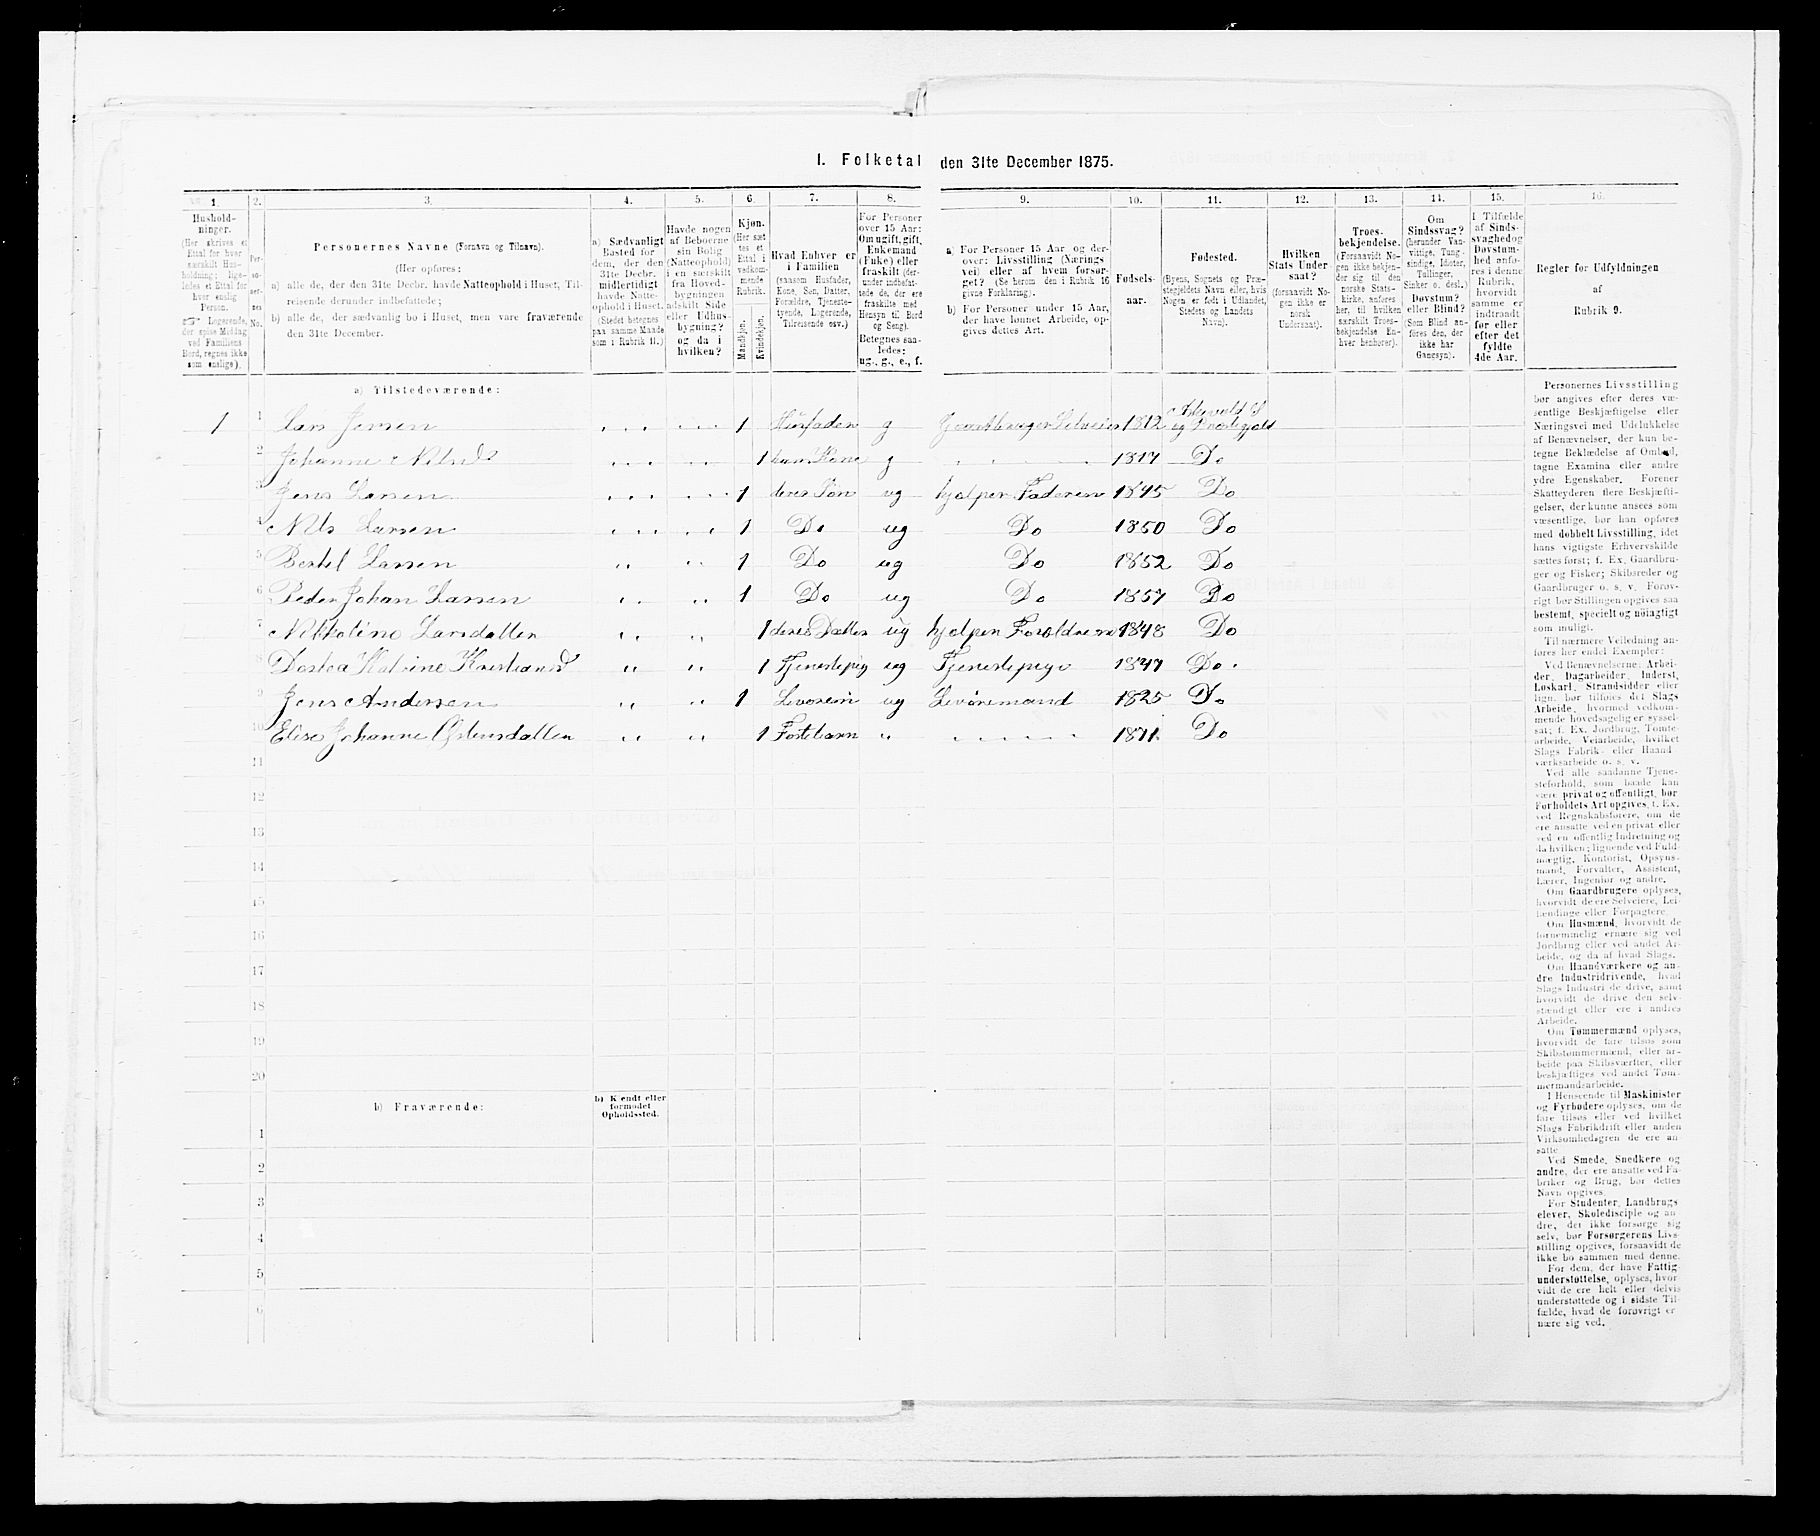 I. Folketal den 31te December 1875.
1. 2. 3. 4. 5. 6. 7. 8. 9. 10. 11. 12. 13. 14. 15. 16.
Hushold-
ninger.
(Her skrives et
Ettal for hver
særskilt Hus-
holdning; lige-
ledes et Ettal for
hver enslig
Person.
☞ Logerende,
der spise Middag
ved Familiens
Bord, regnes ikke
som enslige).
Per-
so-
ner-
nes
No.
Personernes Navne (Fornavn og Tilnavn).
(Her opføres:
a) alle de, der den 31te Decbr. havde Natteophold i Huset, Til-
reisende derunder indbefattede;
b) alle de, der sædvanlig bo i Huset, men vare fraværende
den 31te December.
a) Sædvanligt
Bosted for
dem, der den
31te Decbr.
midlertidigt
havde Natte-
ophold i Huset.
(Stedet betegnes
paa samme Maade
som i Rubrik 11.)
Havde nogen
af Beboerne
sin Bolig
(Natteophold)
i en særskilt
fra Hoved-
bygningen
adskilt Side
eller Udhus-
bygning?
og da i
hvilken?
Kjøn.
(Her sæt-
tes et
Ettal i
vedkom-
mende
Rubrik.
Mandkjøn.
Kvindekjøn.
Hvad Enhver er
i Familien
(saasom Husfader,
Kone, Søn, Datter,
Forældre, Tjeneste-
tyende, Logerende,
Tilreisende osv.)
For Personer
over 15 Aar:
Om ugift, gift,
Enkemand
(Enke) eller
fraskilt (der-
under indbefat-
tede de, der ere
fraskilte med
Hensyn til Bord
og Seng).
Betegnes saa-
ledes:
ug., g., e., f.
a) For Personer 15 Aar og der-
over: Livsstilling (Nærings-
vei) eller af hvem forsør-
get? (Se herom den i Rubrik 16
givne Forklaring).
b) For Personer under 15 Aar,
der have lønnet Arbeide, op-
gives dettes Art.
Fødsels-
aar.
Fødested.
(Byens, Sognets og Præ-
stegjeldets Navn eller, hvis
Nogen er født i Udlandet,
Stedets og Landets
Navn).
Hvilken
Stats Under-
saat?
(forsaavidt No-
gen ikke er
norsk
Undersaat).
Troes-
bekjendelse.
(Forsaavidt No-
gen ikke bekjen-
der sig til den
norske Stats-
kirke, anføres
her, til hvilken
særskilt Troes-
bekjendelse En-
hver henhører).
Om
Sindssvag?
(herunder Van-
vittige, Tung-
sindige, Idioter,
Tullinger,
Sinker o. desl.)
Døvstum?
eller Blind?
(Som Blind an-
føres den, der
ikke har
Gangsyn).
I Tilfælde
af Sinds-
svaghed og
Døvstum-
hed anfø-
res i denne
Rubrik,
hvorvidt
samme er
indtraadt
før eller
efter det
fyldte
4de Aar.
Regler for Udfyldningen
af
Rubrik 9.
a) Tilstedeværende:
1 1 Lars Jensen 1 Husfader g Gaardbruger Selveier 1812 S og Præstegjeld
2 Johanne Nilsd 1 hans Kone g 1817 Do
3 Jens Larsen 1 deres Søn ug hjelper Faderen 1845 Do
4 Nils Larsen 1 Do ug Do 1850 Do
5 Bertel Larsen 1 Do ug Do 1852 Do
6 Peder Johan Larsen 1 Do ug Do 1857 Do
7 Nikkoline Larsdatter 1 deres Datter ug hjelper Foreldrene 1848 Do
8 Dortea Katrine Kristiansd 1 Tjenestepig ug Tjenestepige 1847 Do
9 Jens Andersen 1 ug 1825 Do
10 Elise Johanne Østensdatter 1 Fostebarn 1871 Do
11
12
13
14
15
16
17
18
19
20
b) Fraværende:
b) Kjendt eller
formodet
Opholdssted.
1
2
3
4
5
6
Personernes Livsstilling
bør angives efter deres væ-
sentlige Beskjæftigelse eller
Næringsvei med Udelukkelse
af Benævnelser, der kun be-
tegne Beklædelse af Ombud,
tagne Examina eller andre
ydre Egenskaber. Forener
Skatteyderen flere Beskjæfti-
gelser, der kunne ansees som
væsentlige, bør han opføres
med dobbelt Livsstilling, idet
hans vigtigste Erhvervskilde
sættes først; f. Ex. Gaardbru-
ger og Fisker; Skibsreder og
Gaardbruger o. s. v. Forøv-
rigt bør Stillingen opgives saa
bestemt, specielt og nøiagtigt
som muligt.
Til nærmere Veiledning an-
føres her endel Exempler:
Ved Benævnelserne: Arbei-
der, Dagarbeider, Inderst,
Løskarl, Strandsidder eller
lign. bør tilføies det Slags
Arbeide, hvormed vedkom-
mende hovedsagelig er syssel-
sat; f. Ex. Jordbrug, Tomte-
arbeide, Veiarbeide, hvilket
Slags Fabrik- eller Haand-
værksarbeide o. s. v.
Ved alle saadanne Tjene-
steforhold, som baade kan
være privat og offentligt, bør
Forholdets Art opgives, t. Ex.
ved Regnskabsførere, om de
ere ansatte ved en privat eller
ved en offentlig Indretning og
da hvilken; lignende ved Fuld-
mægtig, Kontorist, Opsyns-
mand, Forvalter, Assistent,
Lærer, Ingeniør og andre.
Om Gaardbrugere oplyses,
hvorvidt de ere Selveiere, Lei-
lændinge eller Forpagtere.
Om Husmænd, hvorvidt de
fornemmelig ernære sig ved
Jordbrug eller ved andet Ar-
beide, og da af hvad Slags.
Om Haandværkere og an-
dre Industridrivende, hvad
Slags Industri de drive, samt
hvorvidt de drive den selv-
stændigt eller ere i andres
Arbeide.
Om Tømmermænd oplyses,
hvorvidt de fare tilsøs som
Skibstømmermænd, eller ar-
beide paa Skibsværfter, eller
beskjæftiges ved andet Tøm-
mermandsarbeide.
I Henseende til Maskinister
og Fyrbødere oplyses, om de
fare tilsøs eller ved hvilket
Slags Fabrikdrift eller anden
Virksomhedsgren de ere an-
satte.
Ved Smede, Snedkere og
andre, der ere ansatte ved Fa-
briker og Brug, bør dettes
Navn opgives.
For Studenter, Landbrugs-
elever, Skoledisciple og an-
dre, der ikke forsørge sig
selv, bør Forsørgerens Livs-
stilling opgives, forsaavidt de
ikke bo sammen med denne.
For dem, der have Fattig-
understøttelse, oplyses, hvor-
vidt de ere helt eller delvis
understøttede og i sidste Til-
fælde, hvad de forøvrigt er-
nære sig ved.